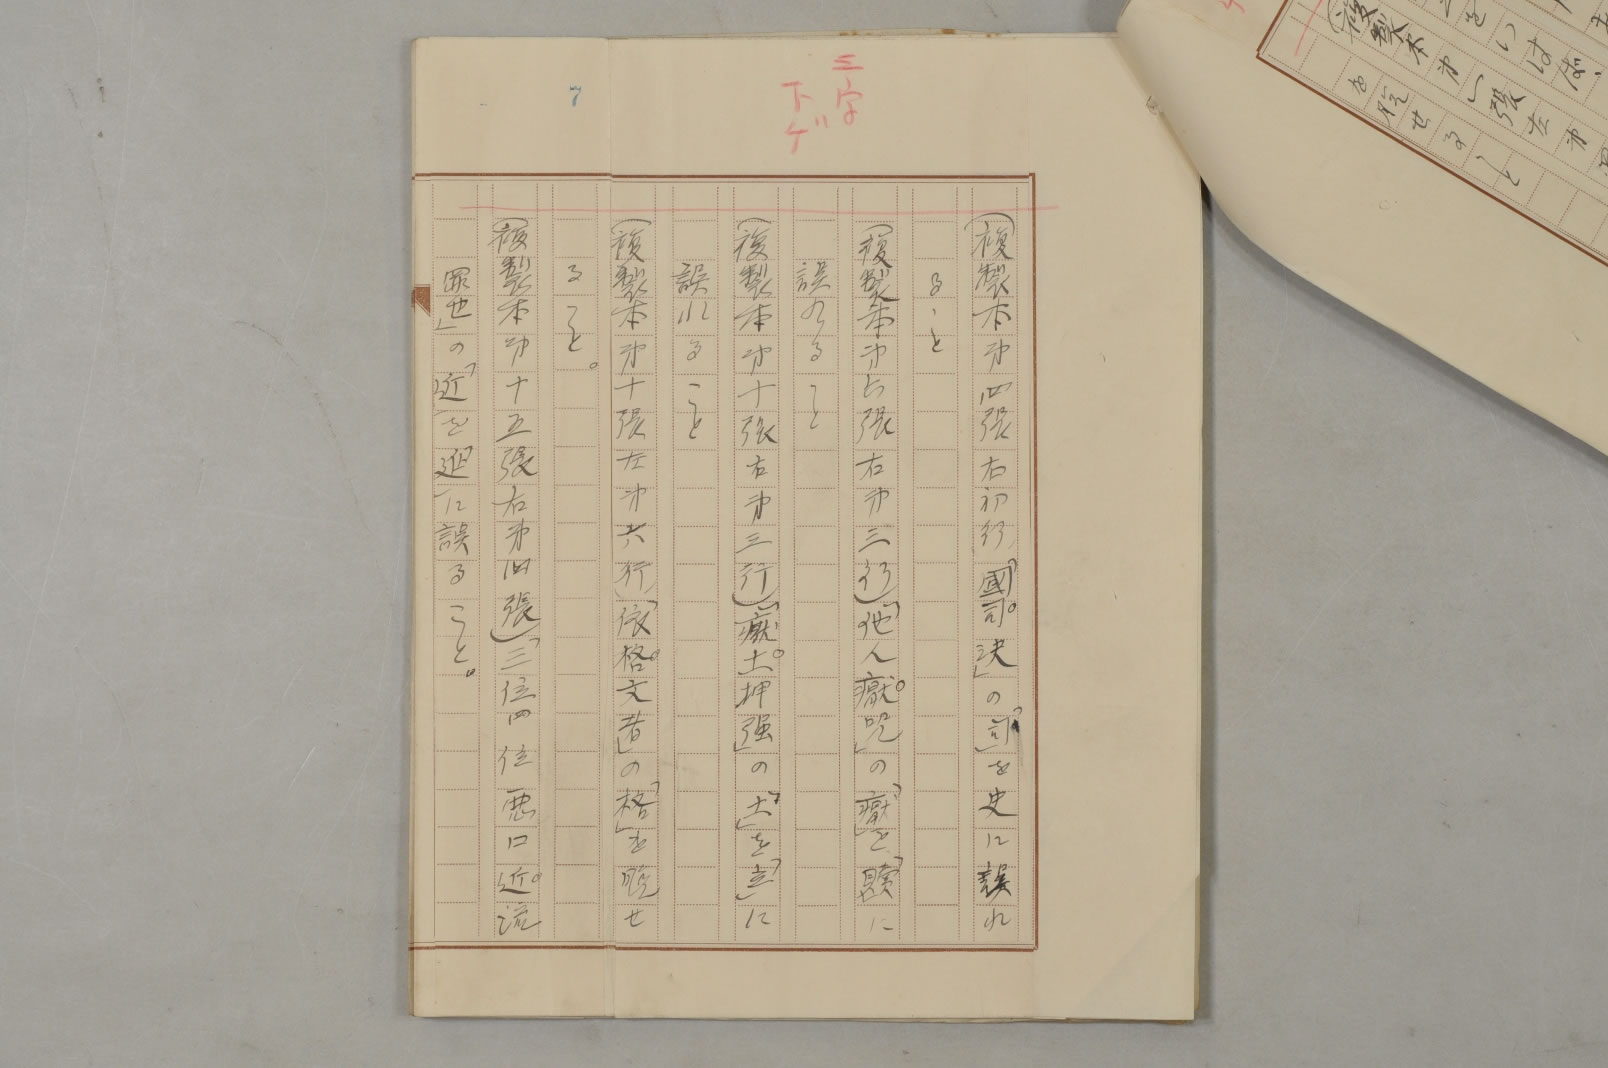 三字
下ゲ
7
(複製本才四張右初行「國司決」の「司」を史に誤れ
ること
(複製本才六張右才三行)「他人厭呪」の「厭」を「贖」に
誤れること
(複製本才十張右才三行)「廐土押强」の「土」を「立」に
誤れること
(複製本才十張左才六行)「依格文者」の「格」を脱せ
ること。
(複製本才十五張右才四張)「三位四位悪口近流
罪也」の「近」を「延」に誤ること。
をいはば、
(複製本才一張左才四
を脱せること